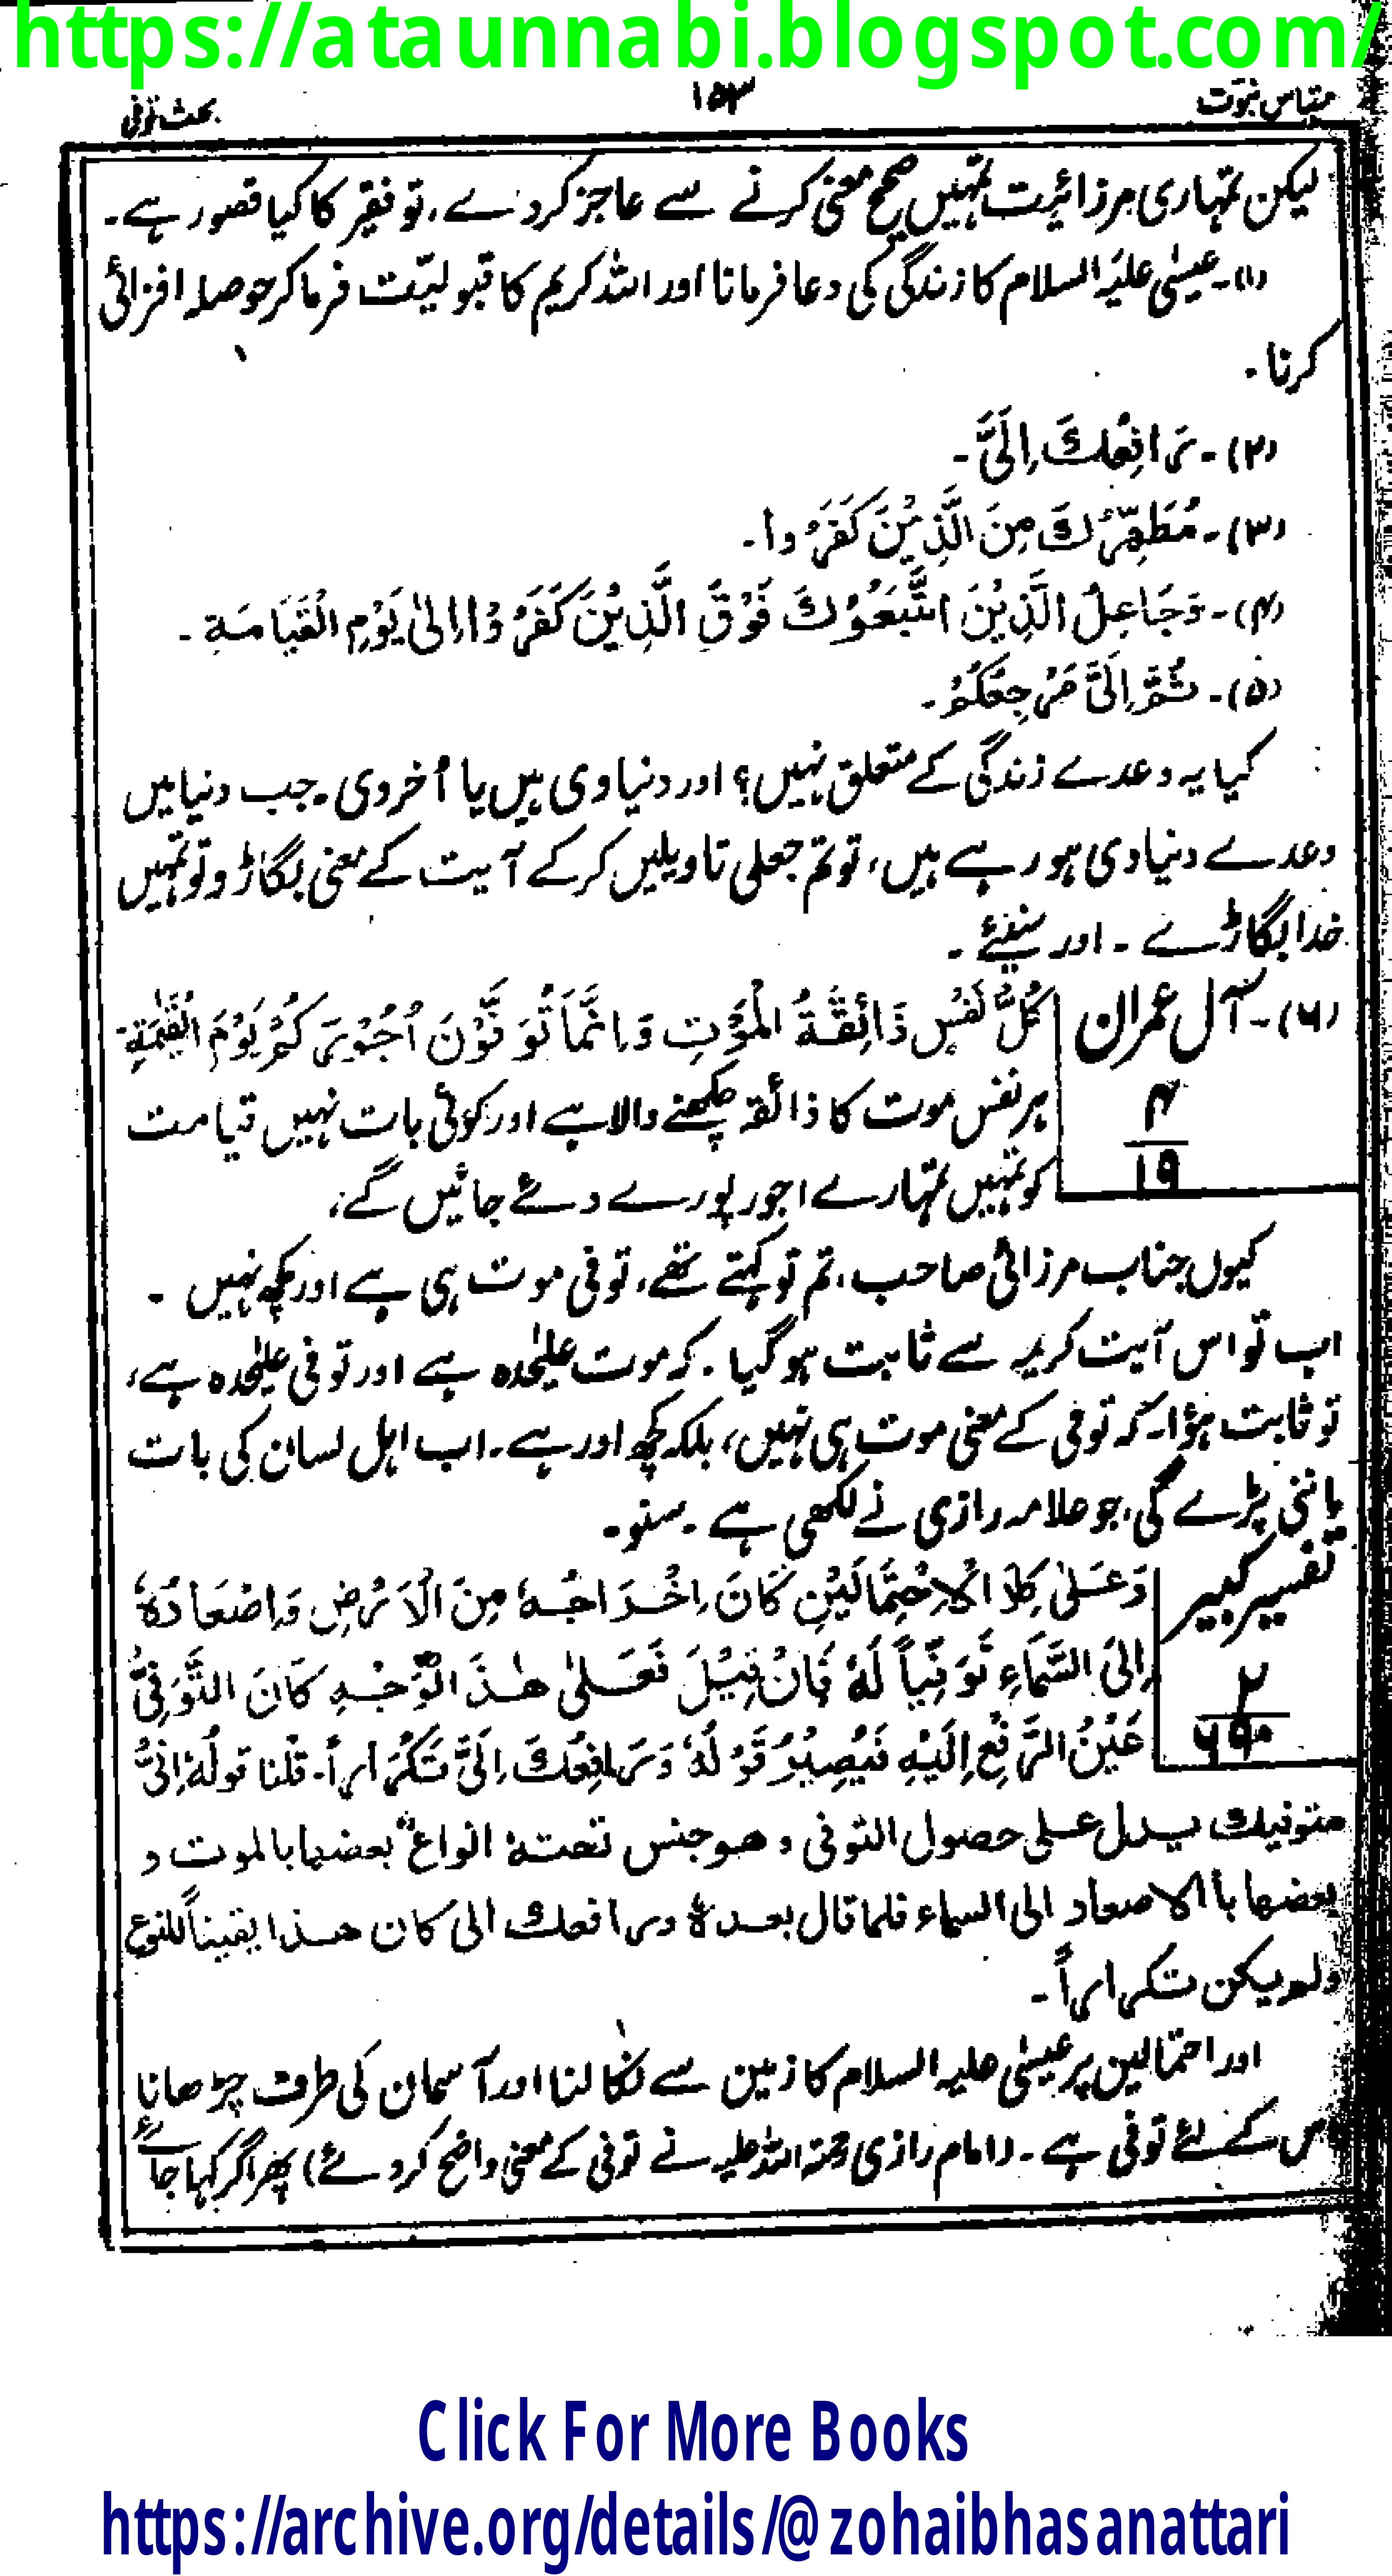 https://ataunnabi.blogspot.com/
مقیاس نبوّت ۱۵۳ بحث توفی
لیکن تمہاری مرزائیت تمہیں صحیح معنی کرنے سے عاجز کر دے، تو فقیر کا کیا قصور ہے۔
(۱)۔ عیسٰی علیہ السلام کا زندگی کی دعا فرمانا اور اللہ کریم کا قبولیّت فرما کر حوصلہ افزائی
کرنا۔
(۲)۔ رَافِعُكَ اِلَیَّ۔
(۳)۔ مُطَهِّرُكَ مِنَ الَّذِیْنَ كَفَرُوا۔
(۴)۔ وَجَاعِلُ الَّذِیْنَ اتَّبَعُوْكَ فَوْقَ الَّذِیْنَ كَفَرُوْا اِلیٰ یَوْمِ الْقَیَامَةِ۔
(۵)۔ ثُمَّ اِلَیَّ مَرْجِعُكُمْ۔
کیا یہ وعدے زندگی کے متعلق نہیں؟ اور دنیاوی ہیں یا اُخروی۔ جب دنیا میں
وعدے دنیاوی ہو رہے ہیں، تو تم جعلی تاویلیں کر کے آیت کے معنی بگاڑو تو تمہیں
خدا بگاڑے۔ اور سنئے۔
(۶)۔ آل عمران كُلُّ نَفْسٍ ذَائِقَةُ الْمَوْتِ وَاِنَّمَا تُوَفَّوْنَ اُجُوْرَكُمْ یَوْمَ الْقِیٰمَةِ۔
۴ ہر نفس موت کا ذائقہ چکھنے والا ہے اور کوئی بات نہیں قیامت
۱۹ کو تمہیں تمہارے اجور پورے دئے جائیں گے،
کیوں جناب مرزائی صاحب، تم تو کہتے تھے، توفی موت ہی ہے اور کچھ نہیں۔
اب تو اس آیت کریمہ سے ثابت ہو گیا۔ کہ موت علیٰحدہ ہے اور توفی علیٰحدہ ہے،
تو ثابت ہؤا۔ کہ توفی کے معنی موت ہی نہیں، بلکہ کچھ اور ہے۔ اب اہل لسان کی بات
ماننی پڑے گی، جو علامہ رازی نے لکھی ہے۔ سنو۔
تفسیر کبیر وَعَلیٰ كِلاَ الْاِحْتِمَالَیْنِ كَانَ اِخْرَاجُهٗ مِنَ الْاَرْضِ وَاِصْعَادُهٗ
۲ اِلیَ السَّمَاءِ تَوَفِّیاً لَهٗ فَاِنْ قِیْلَ فَعَلیٰ هٰذَ الْوَجْهِ كَانَ التَّوَفِّیُّ
۶۹۰ عَیْنُ الرَّفْعِ اِلَیْهِ فَیُصِیْرُ قَوْلُهٗ وَرَافِعُكَ اِلَیَّ تَكْرَاراً۔ قلنا قولُهٗ اِنِّیْ
متوفیك یدل علی حصول التوفی وھو جنس تحتهٗ انواع بعضھا بالموت و
بعضھا باالاصعاد الی السماء فلما قال بعدهٗ ورافعك الی كان ھذا یقیناً للنوع
ولم یكن تكراراً۔
اور احتمالین پر عیسٰی علیہ السلام کا زمین سے نکالنا اور آسمان کی طرف چڑھانا
اس کے لئے توفی ہے۔ (امام رازی رحمۃ اللہ علیہ نے توفی کے معنی واضح کر دئے) پھر اگر کہا جائے
Click For More Books
https://archive.org/details/@zohaibhasanattari